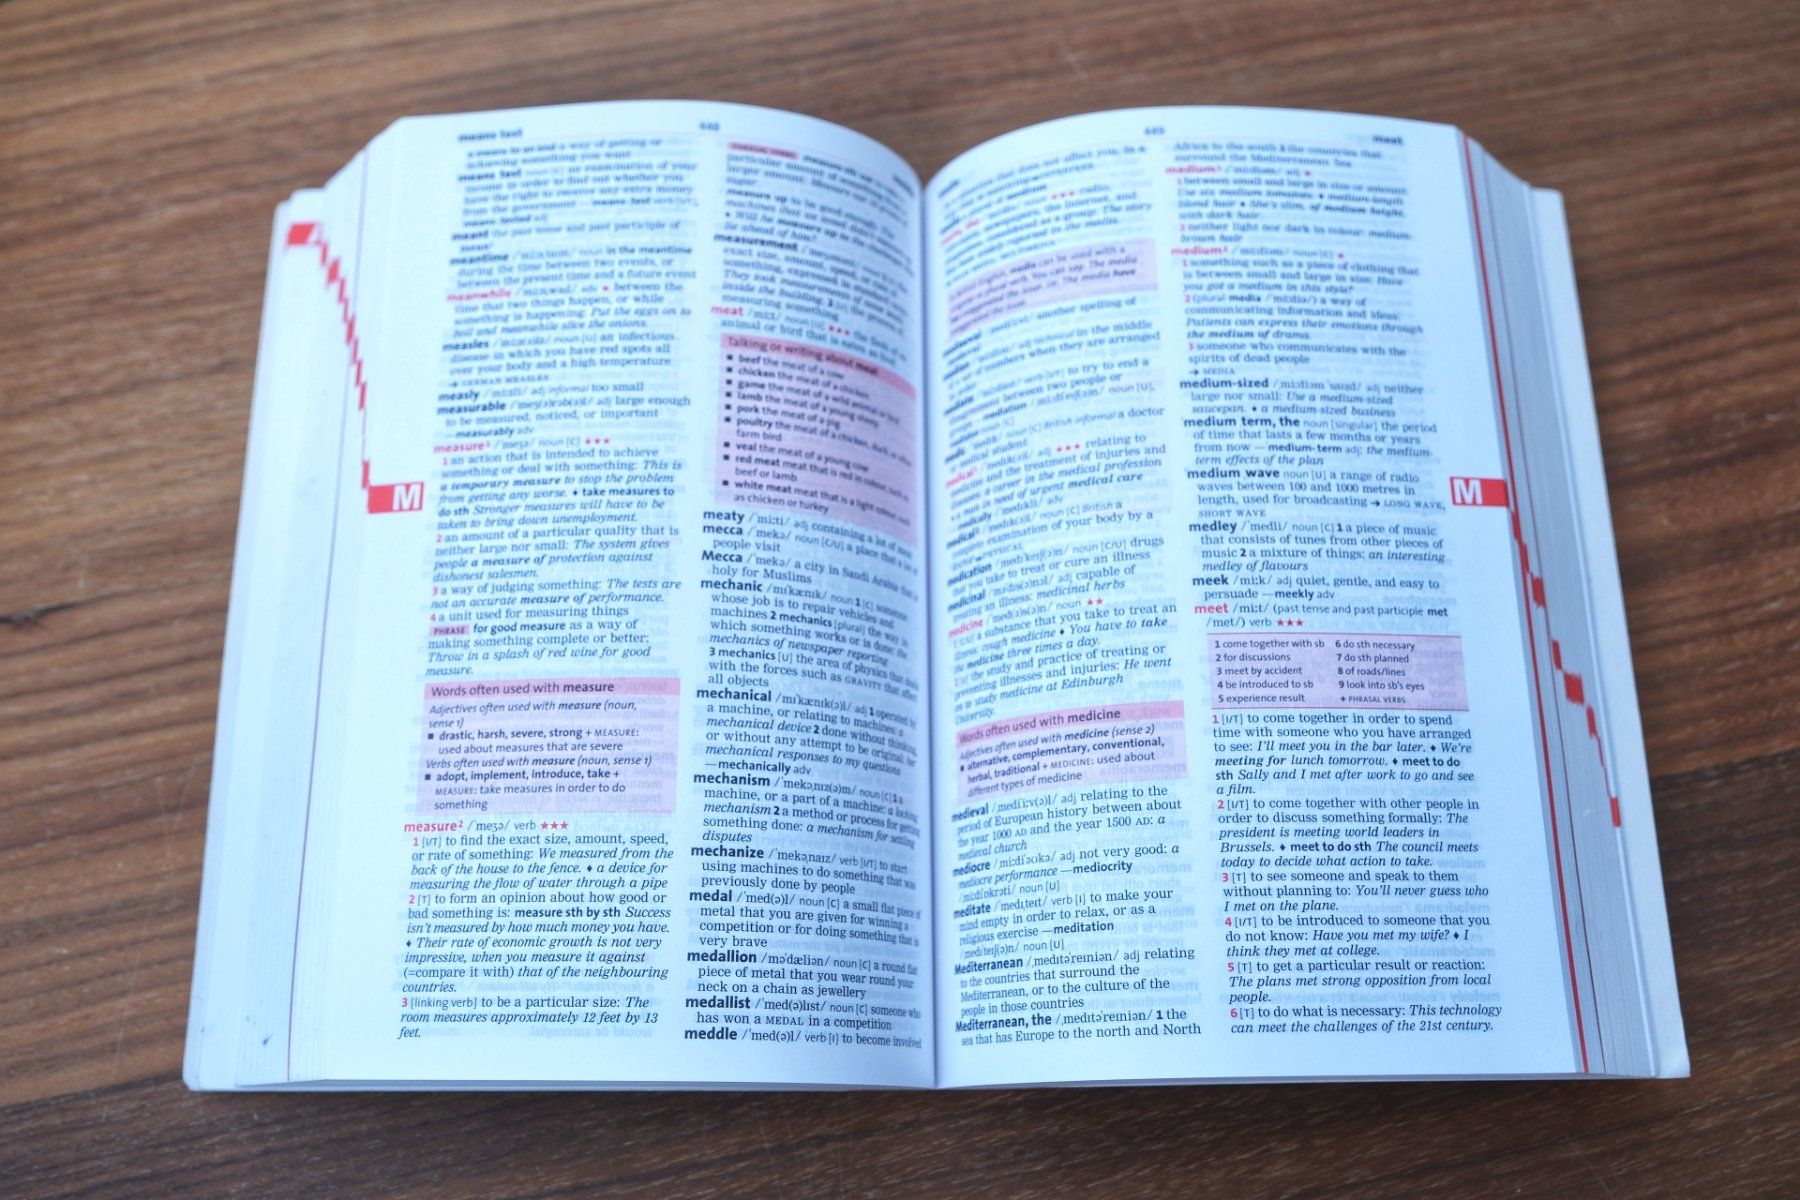 means test
a means to an end a way of getting or
achieving something you want
means test noun [C] an examination of your
income in order to find out whether you
have the right to receive any extra money
from the government —means-test verb [I/T],
means-tested adj
meant the past tense and past participle of
mean¹
meantime noun in the meantime
during the time between two events, or
between the present time and a future event
meanwhile adv ★ between the
time that two things happen, or while
something is happening: Put the eggs on to
boil and meanwhile slice the onions.
measles noun [U] an infectious
disease in which you have red spots all
over your body and a high temperature
→ GERMAN MEASLES
measly adj informal too small
measurable adj large enough
to be measured, noticed, or important
—measurably adv
measure¹ /ˈmeʒə/ noun [C] ★★★
1 an action that is intended to achieve
something or deal with something: This is
a temporary measure to stop the problem
from getting any worse. ♦ take measures to
do sth Stronger measures will have to be
taken to bring down unemployment.
2 an amount of a particular quality that is
neither large nor small: The system gives
people a measure of protection against
dishonest salesmen.
3 a way of judging something: The tests are
not an accurate measure of performance.
4 a unit used for measuring things
PHRASE for good measure as a way of
making something complete or better:
Throw in a splash of red wine for good
measure.
Words often used with measure
Adjectives often used with measure (noun,
sense 1)
■ drastic, harsh, severe, strong + MEASURE:
used about measures that are severe
Verbs often used with measure (noun, sense 1)
■ adopt, implement, introduce, take +
MEASURE: take measures in order to do
something
measure² /ˈmeʒə/ verb ★★★
1 [I/T] to find the exact size, amount, speed,
or rate of something: We measured from the
back of the house to the fence. ♦ a device for
measuring the flow of water through a pipe
2 [T] to form an opinion about how good or
bad something is: measure sth by sth Success
isn't measured by how much money you have.
♦ Their rate of economic growth is not very
impressive, when you measure it against
(=compare it with) that of the neighbouring
countries.
3 [linking verb] to be a particular size: The
room measures approximately 12 feet by 13
feet.
M
measurement
exact size, amount, speed,
something, expressed in
They took measurements of
inside the building. 2
measuring something
meat /miːt/ noun [U] ★★★ the flesh of
animal or bird that is eaten
Talking or writing about meat
■ beef the meat of a cow
■ chicken the meat of a chicken
■ game the meat of a wild animal or
■ lamb the meat of a young sheep
■ pork the meat of a pig
■ poultry the meat of a chicken, duck, or other
farm bird
■ veal the meat of a young cow
■ red meat meat that is red in colour, such as
beef or lamb
■ white meat meat that is a light colour, such
as chicken or turkey
meaty /ˈmiːti/ adj containing a lot of meat
mecca /ˈmekə/ noun [C/U] a place that a lot of
people visit
Mecca /ˈmekə/ a city in Saudi Arabia that is
holy for Muslims
mechanic /mɪˈkænɪk/ noun 1 [C] someone
whose job is to repair vehicles and
machines 2 mechanics [plural] the way in
which something works or is done: the
mechanics of newspaper reporting
3 mechanics [U] the area of physics that deals
with the forces such as GRAVITY that affect
all objects
mechanical /mɪˈkænɪk(ə)l/ adj 1 operated by
a machine, or relating to machines: a
mechanical device 2 done without thinking,
or without any attempt to be original: her
mechanical responses to my questions
—mechanically adv
mechanism /ˈmekəˌnɪz(ə)m/ noun [C] 1 a
machine, or a part of a machine: a locking
mechanism 2 a method or process for getting
something done: a mechanism for settling
disputes
mechanize /ˈmekəˌnaɪz/ verb [I/T] to start
using machines to do something that was
previously done by people
medal /ˈmed(ə)l/ noun [C] a small flat piece of
metal that you are given for winning a
competition or for doing something that is
very brave
medallion /məˈdæliən/ noun [C] a round flat
piece of metal that you wear round your
neck on a chain as jewellery
medallist /ˈmed(ə)lɪst/ noun [C] someone who
has won a MEDAL in a competition
meddle /ˈmed(ə)l/ verb [I] to become involved
another spelling of
adj technical in the middle
numbers when they are arranged
verb [I/T] to try to end a
between two people or
noun [C] British informal a doctor
medical student
adj ★★★ relating to
medicine and the treatment of injuries and
illnesses: a career in the medical profession
a man in need of urgent medical care
medically adv
noun [C] British a
complete examination of your body by a
doctor = PHYSICAL
medication noun [C/U] drugs
that you take to treat or cure an illness
medicinal adj capable of
treating an illness: medicinal herbs
medicine noun ★★
1 [C/U] a substance that you take to treat an
illness: cough medicine ♦ You have to take
the medicine three times a day.
2 [U] the study and practice of treating or
preventing illnesses and injuries: He went
on to study medicine at Edinburgh
University.
Words often used with medicine
Adjectives often used with medicine (sense 2)
■ alternative, complementary, conventional,
herbal, traditional + MEDICINE: used about
different types of medicine
medieval /ˌmediˈiːv(ə)l/ adj relating to the
period of European history between about
the year 1000 AD and the year 1500 AD: a
medieval church
mediocre /ˌmiːdiˈəʊkə/ adj not very good: a
mediocre performance —mediocrity
/ˌmiːdiˈɒkrəti/ noun [U]
meditate /ˈmedɪteɪt/ verb [I] to make your
mind empty in order to relax, or as a
religious exercise —meditation
/ˌmedɪˈteɪʃ(ə)n/ noun [U]
Mediterranean /ˌmedɪtəˈreɪniən/ adj relating
to the countries that surround the
Mediterranean, or to the culture of the
people in those countries
Mediterranean, the /ˌmedɪtəˈreɪniən/ 1 the
sea that has Europe to the north and North
meet
Africa to the south 2 the countries that
surround the Mediterranean Sea
medium¹ /ˈmiːdiəm/ adj ★
1 between small and large in size or amount:
Use six medium tomatoes. ♦ medium-length
blond hair ♦ She's slim, of medium height,
with dark hair.
2 neither light nor dark in colour: medium-
brown hair
medium² /ˈmiːdiəm/ noun [C] ★
1 something such as a piece of clothing that
is between small and large in size: Have
you got a medium in this style?
2 (plural media /ˈmiːdiə/) a way of
communicating information and ideas:
Patients can express their emotions through
the medium of drama.
3 someone who communicates with the
spirits of dead people
→ MEDIA
medium-sized /ˌmiːdiəm ˈsaɪzd/ adj neither
large nor small: Use a medium-sized
saucepan. ♦ a medium-sized business
medium term, the noun [singular] the period
of time that lasts a few months or years
from now —medium-term adj: the medium-
term effects of the plan
medium wave noun [U] a range of radio
waves between 100 and 1000 metres in
length, used for broadcasting → LONG WAVE,
SHORT WAVE
medley /ˈmedli/ noun [C] 1 a piece of music
that consists of tunes from other pieces of
music 2 a mixture of things: an interesting
medley of flavours
meek /miːk/ adj quiet, gentle, and easy to
persuade —meekly adv
meet /miːt/ (past tense and past participle met
/met/) verb ★★★
1 come together with sb 6 do sth necessary
2 for discussions 7 do sth planned
3 meet by accident 8 of roads/lines
4 be introduced to sb 9 look into sb's eyes
5 experience result + PHRASAL VERBS
1 [I/T] to come together in order to spend
time with someone who you have arranged
to see: I'll meet you in the bar later. ♦ We're
meeting for lunch tomorrow. ♦ meet to do
sth Sally and I met after work to go and see
a film.
2 [I/T] to come together with other people in
order to discuss something formally: The
president is meeting world leaders in
Brussels. ♦ meet to do sth The council meets
today to decide what action to take.
3 [T] to see someone and speak to them
without planning to: You'll never guess who
I met on the plane.
4 [I/T] to be introduced to someone that you
do not know: Have you met my wife? ♦ I
think they met at college.
5 [T] to get a particular result or reaction:
The plans met strong opposition from local
people.
6 [T] to do what is necessary: This technology
can meet the challenges of the 21st century.
M